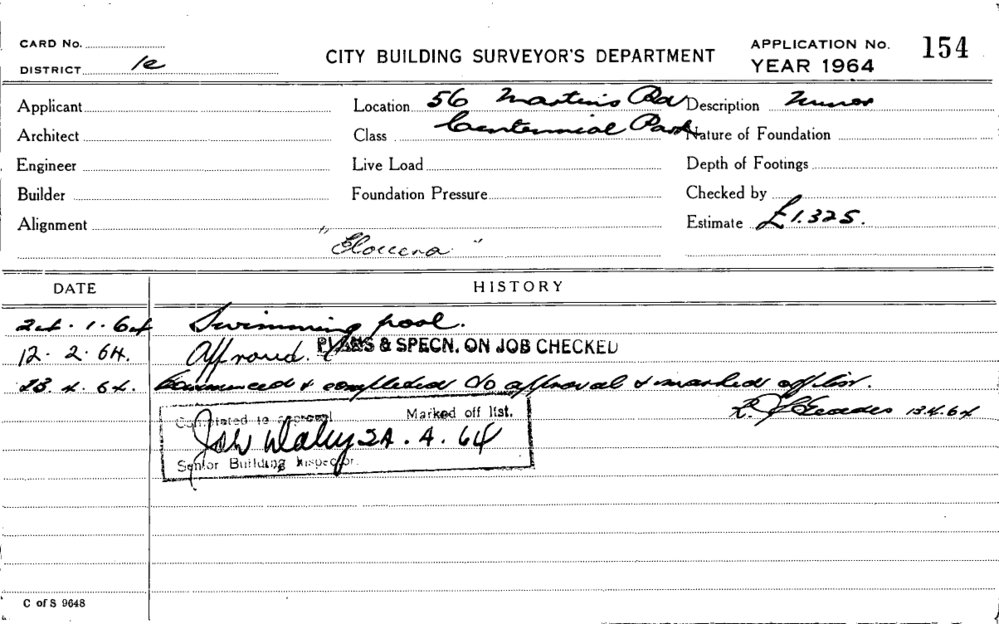 CARD No.
DISTRICT 1e
CITY BUILDING SURVEYOR'S DEPARTMENT
APPLICATION No. 154
YEAR 1964
Applicant
Location 56 Martins Rd
Description Minor
Architect
Class Centennial Park
Nature of Foundation
Engineer
Live Load
Depth of Footings
Builder
Foundation Pressure
Checked by
Alignment
Estimate £1.325.
"Elouera"
DATE
HISTORY
24.1.64 Swimming pool.
12.2.64. Approved. PLANS & SPECN. ON JOB CHECKED
Commenced & completed to approval & marked off list.
Completed to approval Marked off list.
4.64
Senior Building Inspector.
C of S 9648